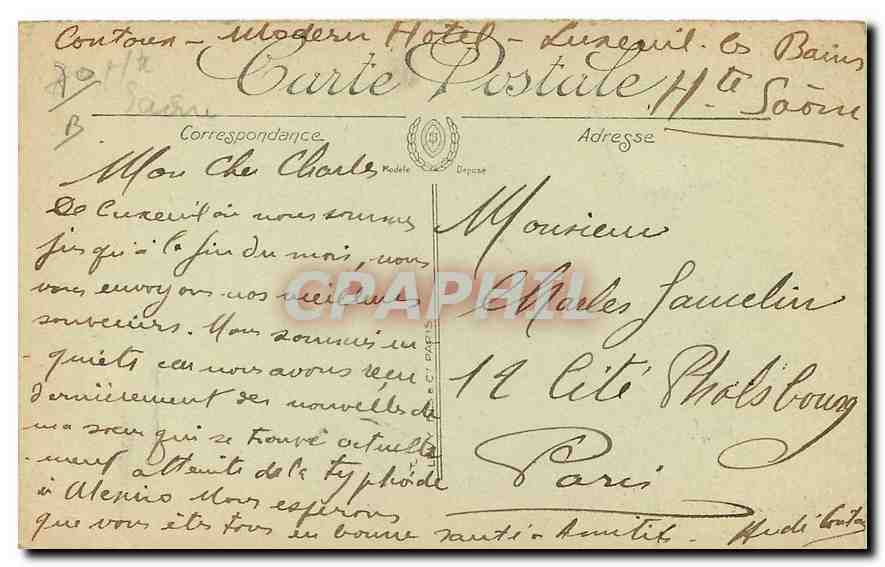 Contoux - Modern Hotel - Luxeuil les Bains
Hte Saône
Hte
Saône
B
Carte Postale
Correspondance
Adresse
Modèle Déposé
Mon Cher Charles
De Luxeuil où nous sommes
jusqu'à la fin du mois, nous
vous envoyons nos meilleurs
souvenirs. Nous sommes in-
quiets car nous avons reçu
dernièrement des nouvelles de
ma soeur qui se trouve actuelle
ment atteinte de la typhoïde
à Nous espérons
que vous êtes tous en bonne santé - Amitiés.
Monsieur
Charles Jamelin
12 Cité Phalsbourg
Paris
& Cie PARIS
CPAPHIL